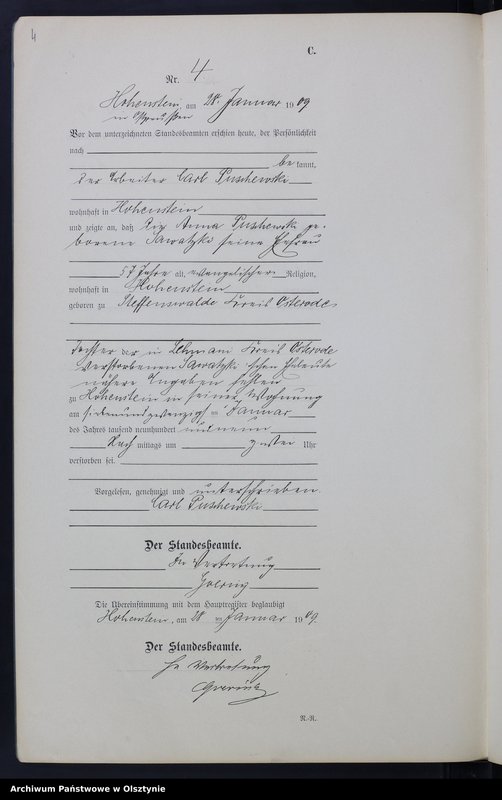 4
C.
Nr. 4
Hohenstein, am 28. Januar 1909
in Ostpreußen
Vor dem unterzeichneten Standesbeamten erschien heute, der Persönlichkeit
nach
be kannt,
der Arbeiter Carl Puschewski
wohnhaft in Hohenstein
und zeigte an, daß Anna Puschewski ge-
borene Sawatzki seine Ehefrau
57 Jahre alt, evangelischer Religion,
wohnhaft in Hohenstein
geboren zu Steffenswalde Kreis Osterode
Tochter der in Kreis Osterode
verstorbenen Sawatzki'schen Eheleute
nähere Angaben fehlen
zu Hohenstein in seiner Wohnung
am siebenundzwanzigsten Januar
des Jahres tausend neunhundert und neun
Nach mittags um zwei Uhr
verstorben sei.
Vorgelesen, genehmigt und unterschrieben
Carl Puschewski
Der Standesbeamte.
In Vertretung
Die Übereinstimmung mit dem Hauptregister beglaubigt
Hohenstein, am 28 ten Januar 1909
Der Standesbeamte.
In Vertretung
R.-R.
Archiwum Państwowe w Olsztynie